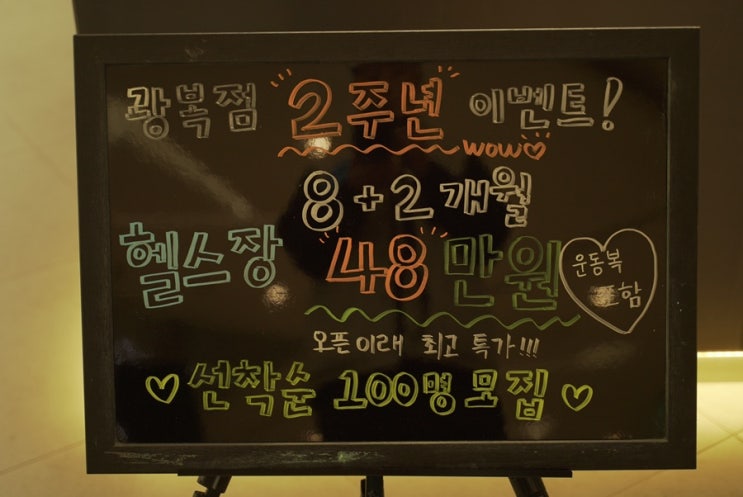 광복점 2주년 이벤트!
wow♡
8+2개월
헬스장 48만원
운동복
포함
오픈이래 최고 특가!!!
♡ 선착순 100명 모집 ♡